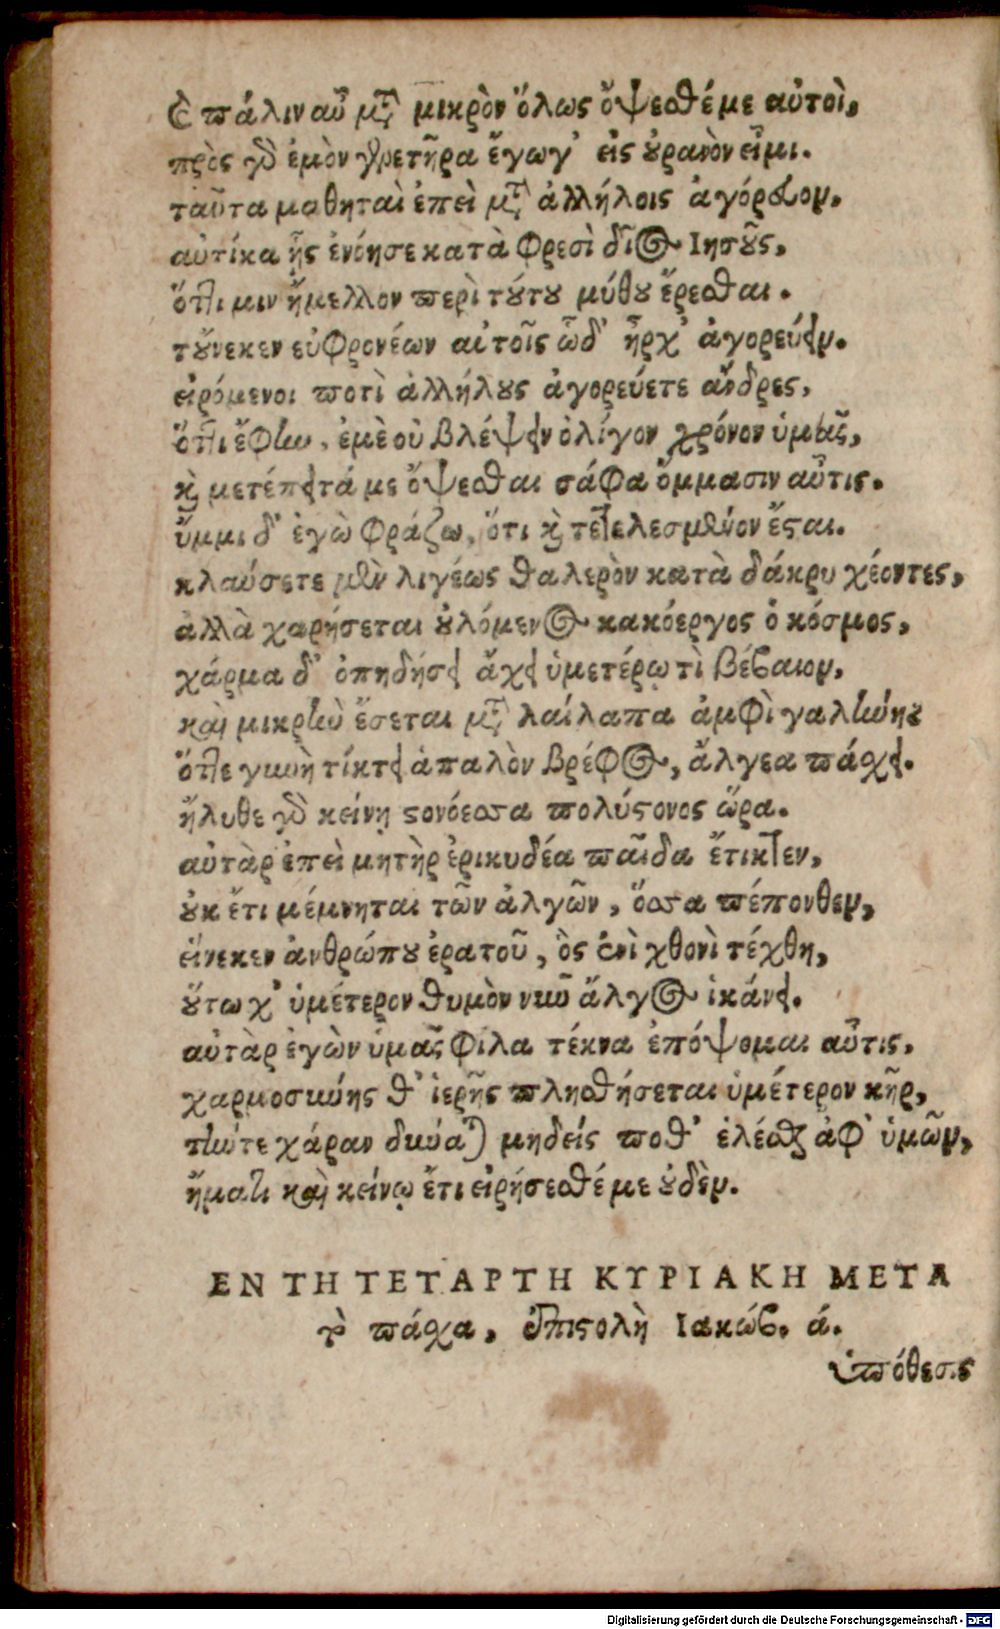 καὶ πάλιν αὖ μετὰ μικρὸν ὅλως ὄψεσθέ με αὐτοὶ,
πρὸς γὰρ ἐμὸν γενετῆρα ἔγωγ' εἰς ȣ̓ρανὸν εἶμι.
ταῦτα μαθηταὶ ἐπεὶ μετ' ἀλλήλοις ἀγόρευον,
αὐτίκα ᾗς ἐνόησε κατὰ φρεσὶ δῖος Ιησȣ͂ς,
ὅττι μιν ἤμελλον περὶ τȣ́τȣ μύθȣ ἔρεσθαι.
τȣ́νεκεν εὐφρονέων αὐτοῖς ὧδ' ἦρχ' ἀγορεύειν.
εἰρόμενοι ποτὶ ἀλλήλȣς ἀγορεύετε ἄνδρες,
ὅττι ἔφην, ἐμὲ οὐ βλέψειν ὀλίγον χρόνον ὑμᾶς,
καὶ μετέπειτά με ὄψεσθαι σάφα ὄμμασιν αὖτις.
ὔμμι δ' ἐγὼ φράζω, ὅτι καὶ τετελεσμένον ἔσται.
κλαύσετε μὲν λιγέως θαλερὸν κατὰ δάκρυ χέοντες,
ἀλλὰ χαρήσεται ȣ̓λόμενος κακόεργος ὁ κόσμος,
χάρμα δ' ὀπηδήσει ἄχει ὑμετέρῳ τὶ βέβαιον,
καὶ μικρὴν ἔσεται μετὰ λαίλαπα ἀμφὶ γαλήνη
ὅτε γυνὴ τίκτει ἁπαλὸν βρέφος, ἄλγεα πάσχει.
ἤλυθε γὰρ κείνῃ στονόεσσα πολύστονος ὥρα.
αὐτὰρ ἐπεὶ μητὴρ ἐρικυδέα παῖδα ἔτικτεν,
ȣ̓κ ἔτι μέμνηται τῶν ἀλγῶν, ὅσσα πέπονθεν,
εἵνεκεν ἀνθρώπȣ ἐρατοῦ, ὃς ἐνὶ χθονὶ τέχθη,
ȣ̔́τω χ' ὑμέτερον θυμὸν νῦν ἄλγος ἱκάνει.
αὐτὰρ ἐγὼν ὑμᾶς φίλα τέκνα ἐπόψομαι αὖτις,
χαρμοσύνης θ' ἱερῆς πλησθήσεται ὑμέτερον κῆρ,
τήν τε χάραν δύναται μηδείς ποθ' ἑλέσθαι ἀφ' ὑμῶν,
ἤματι καὶ κείνῳ ἔτι εἰρήσεσθέ με ȣ̓δὲν.
ΕΝ ΤΗ ΤΕΤΑΡΤΗ ΚΥΡΙΑΚΗ ΜΕΤΑ
τὸ πάσχα, ἐπιστολὴ Ιακώβ. ά.
ὑπόθεσις
Digitalisierung gefördert durch die Deutsche Forschungsgemeinschaft - DFG